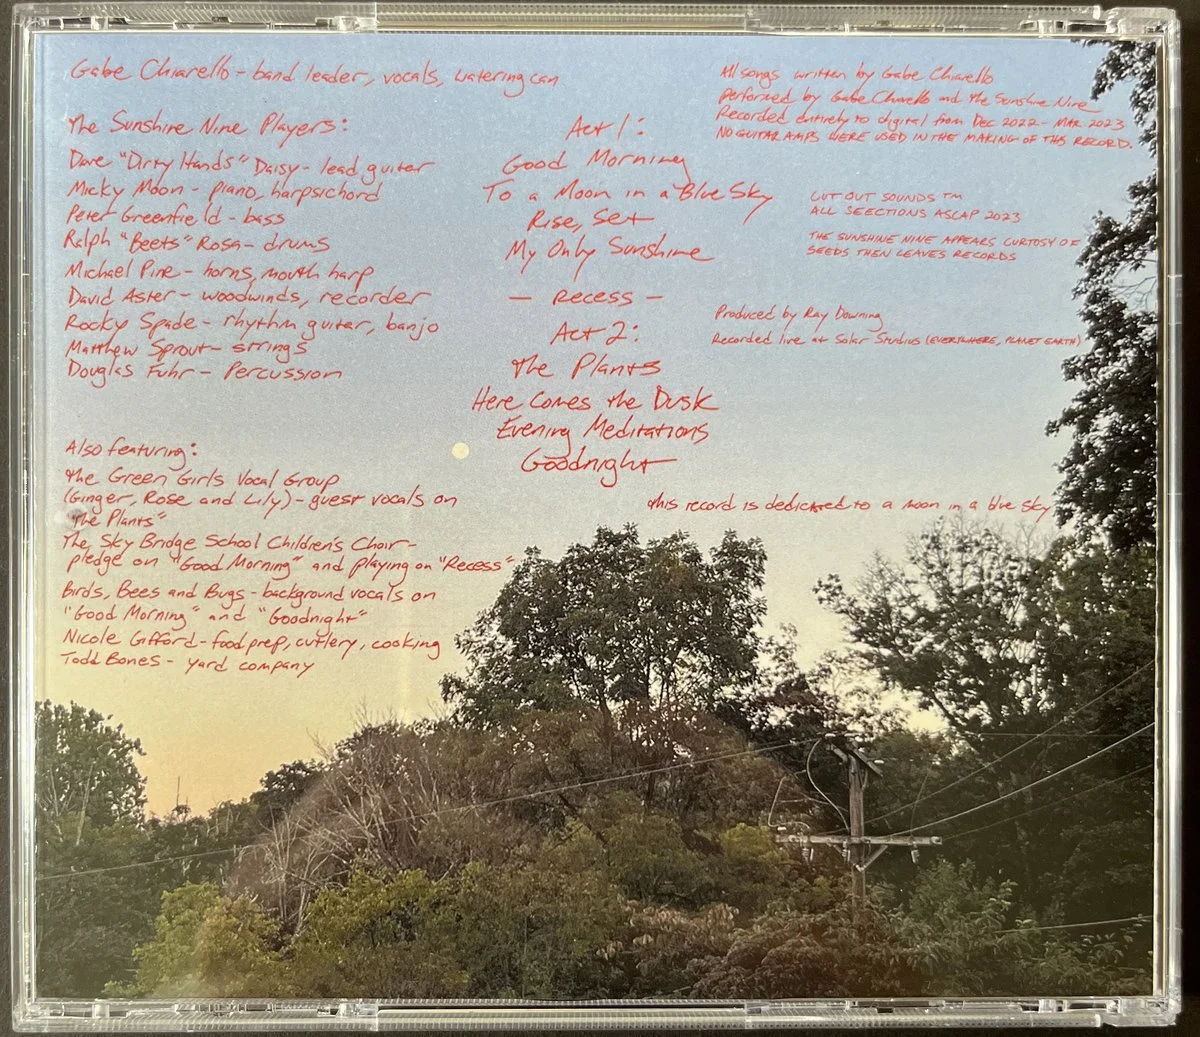 Gabe Chiarello - band leader, vocals, watering can
The Sunshine Nine Players:
Dave "Dirty Hands" Daisy - lead guitar
Micky Moon - piano, harpsichord
Peter Greenfield - bass
Ralph "Beets" Rosa - drums
Michael Pine - horns, mouth harp
David Aster - woodwinds, recorder
Rocky Spade - rhythm guitar, banjo
Matthew Sprout - strings
Douglas Fuhr - Percussion
Also featuring:
The Green Girls Vocal Group
(Ginger, Rose and Lily) - guest vocals on
"The Plants"
The Sky Bridge School Children's Choir -
pledge on "Good Morning" and playing on "Recess"
Birds, Bees and Bugs - background vocals on
"Good Morning" and "Goodnight"
Nicole Gifford - food prep, cutlery, cooking
Todd Bones - yard company
Act 1:
Good Morning
To a Moon in a Blue Sky
Rise, Set
My Only Sunshine
— Recess —
Act 2:
The Plants
Here Comes the Dusk
Evening Meditations
Goodnight
All songs written by Gabe Chiarello
performed by Gabe Chiarello and the Sunshine Nine
Recorded entirely to digital from Dec 2022 - Mar 2023
NO GUITAR AMPS WERE USED IN THE MAKING OF THIS RECORD.
CUT OUT SOUNDS TM
ALL SEECTIONS ASCAP 2023
THE SUNSHINE NINE APPEARS CURTOSY OF
SEEDS THEN LEAVES RECORDS
Produced by Ray Downing
Recorded live at Solar Studios (EVERYWHERE, PLANET EARTH)
This record is dedicated to a moon in a blue sky